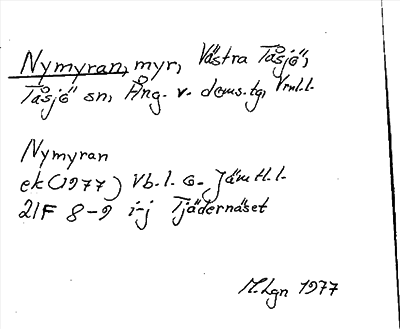 Nymyran, myr, Västra Tåsjö,
Tåsjö sn, Ång. v. doms.tg, Vrnl.l.
Nymyran
ek (1977) Vb.l. o. Jämtl.l.
21F 8-9 i-j Tjädernäset
M.Lgn 1977